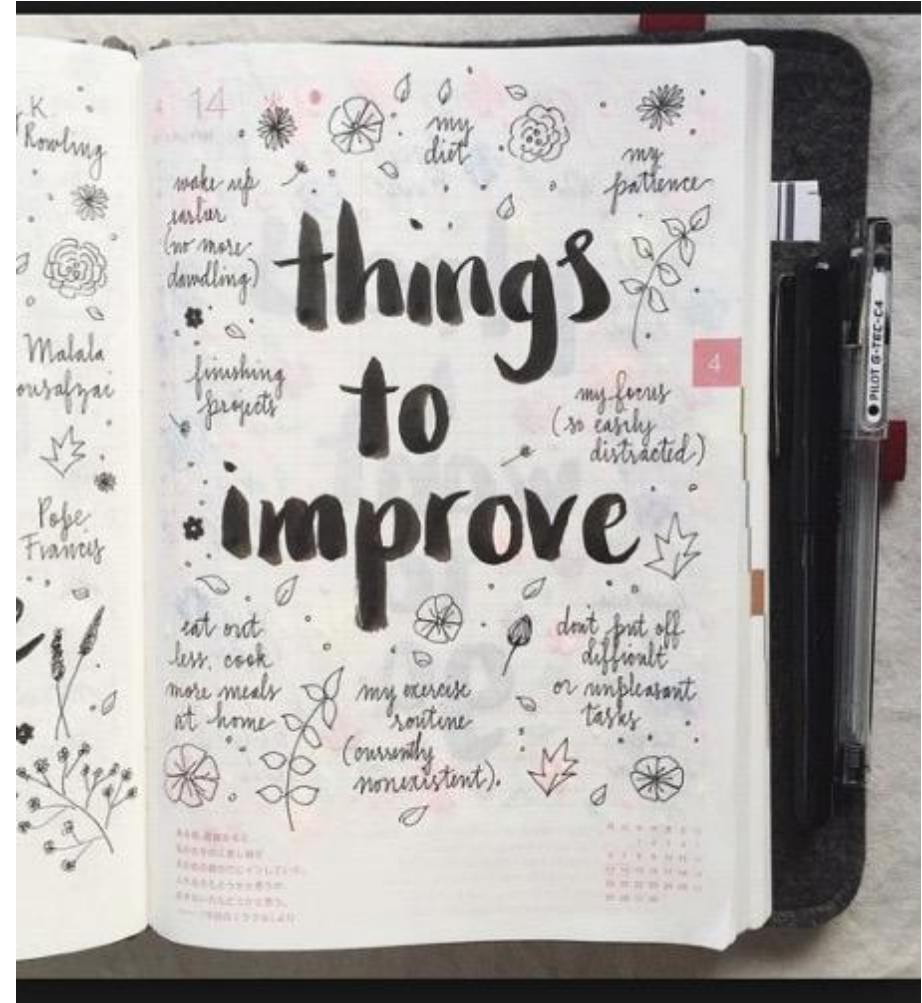 K
Rowling
Malala
ousafzai
Pope
Francis
14 火
my
diet
my
patience
wake up
earlier
(no more
dawdling)
things
to
improve
finishing
projects
4
my focus
(so easily
distracted)
eat out
less, cook
more meals
at home
my exercise
routine
(currently
nonexistent).
don't put off
difficult
or unpleasant
tasks
PILOT G-TEC-C4